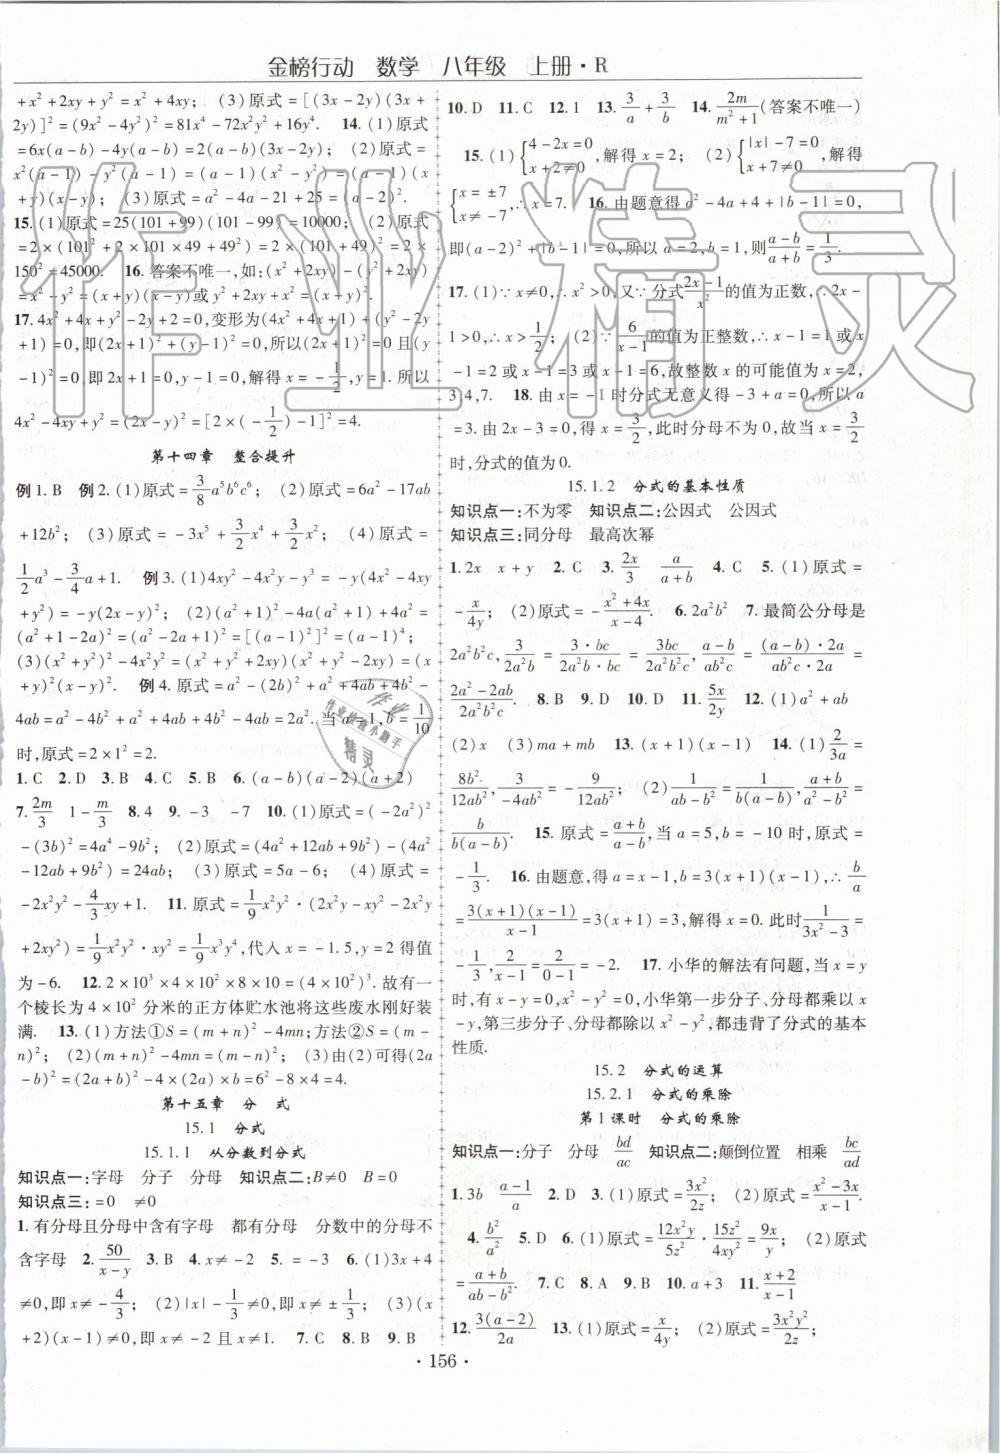 金榜行动 数学 八年级 上册·R
+x²+2xy+y²=x²+4xy; (3)原式=[(3x-2y)(3x+
2y)]²=(9x²-4y²)²=81x⁴-72x²y²+16y⁴. 14.(1)原式
=6x(a-b)-4y(a-b)=2(a-b)(3x-2y); (2)原式=
x²(a-1)-y²(a-1)=(a-1)(x²-y²)=(a-1)(x
+y)(x-y); (3)原式=a²-4a-21+25=(a-2)².
15.(1)原式=25(101+99)(101-99)=10000; (2)原式
=2×(101²+2×101×49+49²)=2×(101+49)²=2×
150²=45000. 16.答案不唯一,如:(x²+2xy)-(y²+2xy)
=x²-y²=(x+y)(x-y)或y²+2xy+x²=(x+y)².
17.4x²+4x+y²-2y+2=0,变形为(4x²+4x+1)+(y²-2y
+1)=0,即(2x+1)²+(y-1)²=0,所以(2x+1)²=0且(y
-1)²=0,即2x+1=0,y-1=0,解得x=-1/2,y=1.所以
4x²-4xy+y²=(2x-y)²=[2×(-1/2)-1]²=4.
第十四章 整合提升
例1.B 例2.(1)原式=3/8a⁵b⁶c⁶; (2)原式=6a²-17ab
+12b²; (3)原式=-3x⁵+3/2x⁴+3/2x²; (4)原式=
1/2a³-3/4a+1. 例3.(1)4xy²-4x²y-y³=-y(4x²-4xy
+y²)=-y(2x-y)²; (2)(a²+1)²-4a(a²+1)+4a²=
(a²+1-2a)²=(a²-2a+1)²=[(a-1)²]²=(a-1)⁴;
(3)(x²+y²)²-4x²y²=(x²+y²+2xy)(x²+y²-2xy)=(x
+y)²(x-y)². 例4.原式=a²-(2b)²+a²+4ab+4b²-
4ab=a²-4b²+a²+4ab+4b²-4ab=2a².当a=1,b=1/10
时,原式=2×1²=2.
1.C 2.D 3.B 4.C 5.B 6.(a-b)(a-2)(a+2)
7.2m/3 1-m/3 8.4 9.-3 -7 10.(1)原式=(-2a²)²
-(3b)²=4a⁴-9b²; (2)原式=(4a²+12ab+9b²)-(4a²
-12ab+9b²)=24ab; (3)原式=5a-6; (4)原式=
-2x²y²-4/3xy+1. 11.原式=1/9x²y²·(2x²y-xy²-2x²y
+2xy²)=1/9x²y²·xy²=1/9x³y⁴,代入x=-1.5,y=2得值
为-6. 12.2×10³×4×10²×8×10=(4×10²)³.故有一
个棱长为4×10²分米的正方体贮水池将这些废水刚好装
满. 13.(1)方法①S=(m+n)²-4mn;方法②S=(m-
n)²; (2)(m+n)²-4mn=(m-n)²; (3)由(2)可得(2a
-b)²=(2a+b)²-4×(2a)×b=6²-8×4=4.
第十五章 分 式
15.1 分式
15.1.1 从分数到分式
知识点一:字母 分子 分母 知识点二:B≠0 B=0
知识点三:=0 ≠0
1.有分母且分母中含有字母 都有分母 分数中的分母不
含字母 2.50/(x-y) 3.B 4.x≠-2 5.=-3 6.(1)3x+4
≠0,即x≠-4/3; (2)|x|-1/3≠0,即x≠±1/3; (3)(x
+2)(x-1)≠0,即x≠-2且x≠1. 7.C 8.B 9.B
10.D 11.C 12.1 13.3/a+3/b 14.2m/(m²+1)(答案不唯一)
15.(1){4-2x=0, x+2≠0,解得x=2; (2){|x|-7=0, x+7≠0,解得
{x=±7, x≠-7,∴x=7. 16.由题意得a²-4a+4+|b-1|=0,
即(a-2)²+|b-1|=0,所以a=2,b=1,则(a-b)/(a+b)=1/3.
17.(1)∵x≠0,∴x²>0,又∵分式(2x-1)/x²的值为正数,∴2x-
1>0,∴x>1/2; (2)∵6/(x-1)的值为正整数,∴x-1=1或x
-1=2或x-1=3或x-1=6,故整数x的可能值为x=2,
3,4,7. 18.由x=-1时分式无意义得-3+a=0,所以a
=3.由2x-3=0,得x=3/2,此时分母不为0,故当x=3/2
时,分式的值为0.
15.1.2 分式的基本性质
知识点一:不为零 知识点二:公因式 公因式
知识点三:同分母 最高次幂
1.2x x+y 2.C 3.2x/3 a/(a+b) 4.C 5.(1)原式=
-x/4y; (2)原式=-(x²+4x)/(x-4). 6.2a²b² 7.最简公分母是
2a²b²c,3/2a²b=3·bc/2a²b·bc=3bc/2a²b²c,(a-b)/ab²c=(a-b)·2a/ab²c·2a=
(2a²-2ab)/2a²b²c. 8.B 9.D 10.D 11.5x/2y 12.(1)a²+ab
(2)x (3)ma+mb 13.(x+1)(x-1) 14.(1)2/3a=
8b²/12ab²,3/-4ab²=-9/12ab²; (2)1/(ab-b²)=1/b(a-b),b/(a²-b²)=
b/b(a-b). 15.原式=(a+b)/(a-b),当a=5,b=-10时,原式=
-1/3. 16.由题意,得a=x-1,b=3(x+1)(x-1),∴b/a
=3(x+1)(x-1)/(x-1)=3(x+1)=3,解得x=0.此时1/(3x²-3)=
-1/3,2/(x-1)=2/(0-1)=-2. 17.小华的解法有问题,当x=y
时,有x-y=0,x²-y²=0,小华第一步分子、分母都乘以
x-y,第三步分子、分母都除以x²-y²,都违背了分式的基本
性质.
15.2 分式的运算
15.2.1 分式的乘除
第1课时 分式的乘除
知识点一:分子 分母 bd/ac 知识点二:颠倒位置 相乘 bc/ad
1.3b (a-1)/a 2.D 3.(1)原式=3x²/2z; (2)原式=(x²-3x)/(x-1).
4.b²/a² 5.D 6.(1)原式=12x²y/5z²·15z²/4xy²=9x/y; (2)原式
=(a+b)/(ab-b²). 7.C 8.A 9.B 10.a+3 11.(x+2)/(x-1)
12.3(a-2)/2a 13.(1)原式=x/4y; (2)原式=3x²y²/2z;
·156·
作业精灵
作业
作业检查小助手
精灵